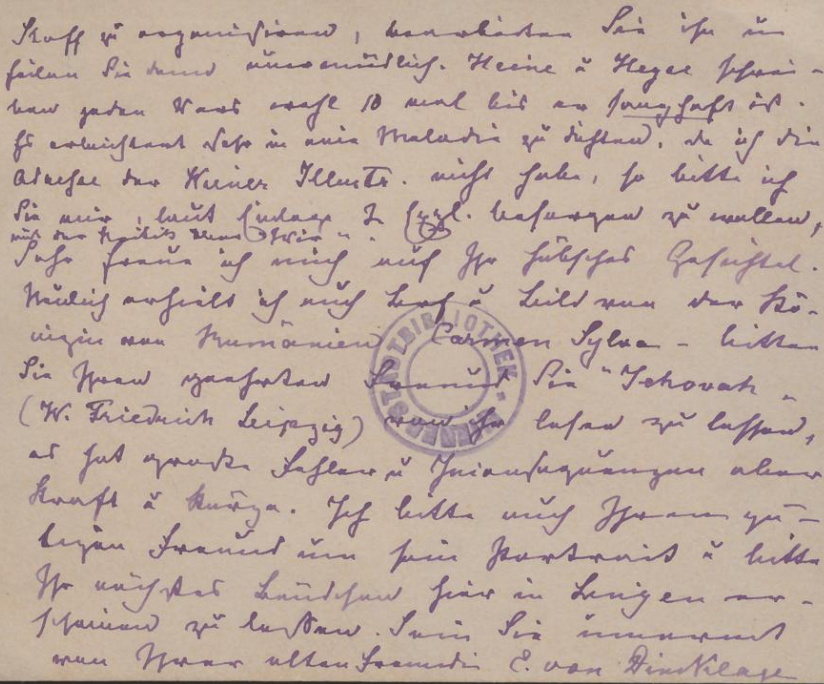 Stoff zu organisiren, bearbeiten Sie ihn u
feilen Sie dann unermüdlich. Heine u Hegel schrei-
ben jeden Vers wohl 10 mal bis er sanghaft ist.
Es erleichtert sehr in eine Melodie zu dichten. da ich die
Adresse der Wiener Illustr. nicht habe, so bitte ich
Sie mir, laut Einlage 2 Expl. besorgen zu wollen,
mit der Kritik
Sehr freue ich mich auf Ihr hübsches Gesichtel.
Neulich erhielt ich auch Brief u Bild von der Kö-
nigin von Rumänien Carmen Sylva - bitten
Sie Ihren geehrten Freund Sie "Jehovah"
(W. Friedrich Leipzig) von ihr lesen zu lassen,
es hat grosse Fehler u Inconsequenzen aber
Kraft u Kürze. Ich bitte auch Ihren gü-
tigen Freund um sein Portrait u bitte
Ihr nächstes Bändchen hier in Lingen er-
scheinen zu lassen. Sein Sie umarmt
von Ihrer alten Freundin E. von Dincklage
STADTBIBLIOTHEK